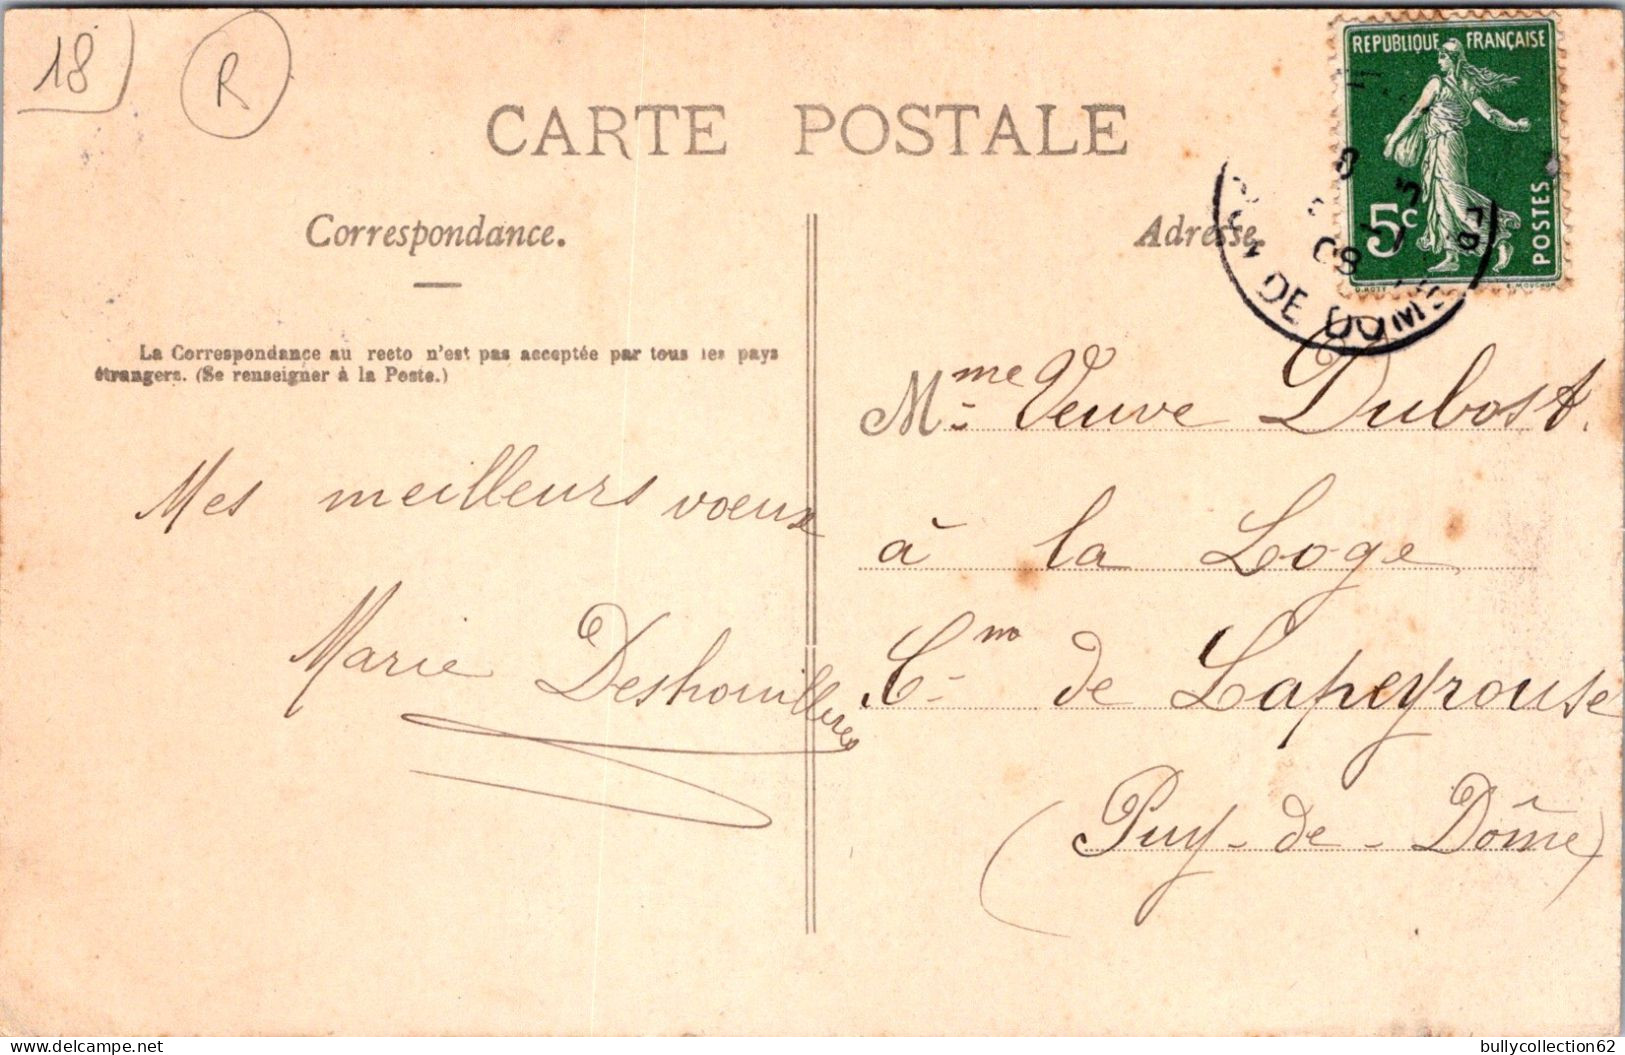 18
R
CARTE POSTALE
REPUBLIQUE FRANÇAISE
5c
POSTES
Correspondance.
Adresse.
08
DE DOME
La Correspondance au recto n'est pas acceptée par tous les pays
étrangers. (Se renseigner à la Poste.)
Mes meilleurs voeux
Marie Deshouilleres
Mme Veuve Dubost.
à la Loge
Cm de Lapeyrouse
(Puy-de-Dôme)
bullycollection62